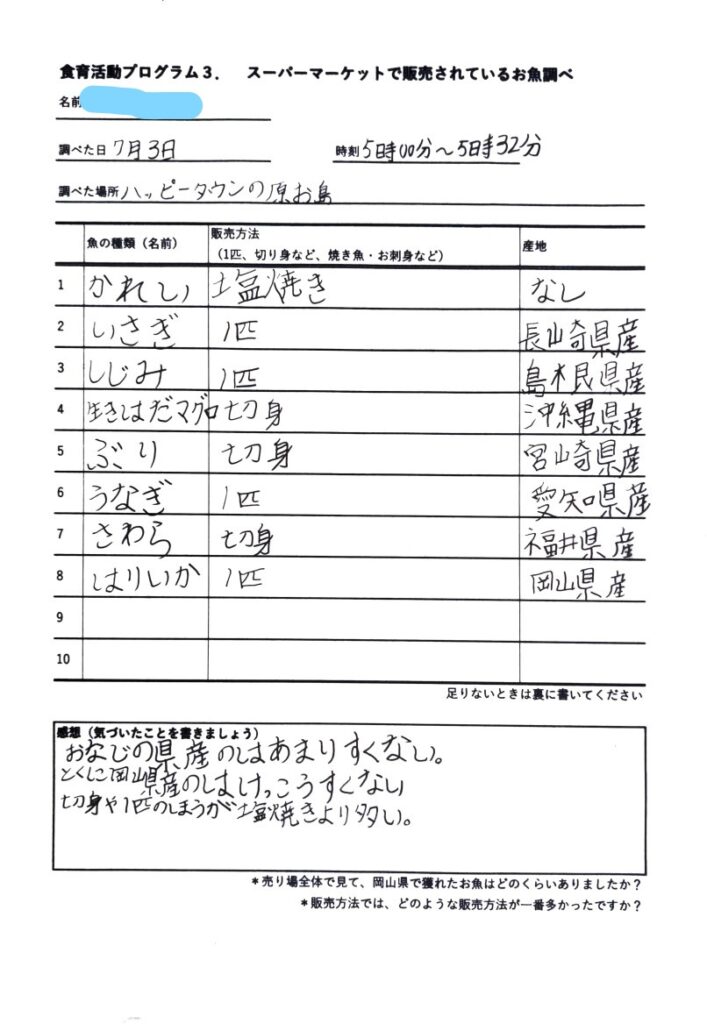 食育活動プログラム３． スーパーマーケットで販売されているお魚調べ
名前
調べた日 7月3日 時刻 5時00分～5時32分
調べた場所 ハッピータウンの原お島
魚の種類（名前） 販売方法（1匹、切り身など、焼き魚・お刺身など） 産地
1 かれい 塩焼き なし
2 いさぎ 1匹 長崎県産
3 しじみ 1匹 島根県産
4 生きはだマグロ 切身 沖縄県産
5 ぶり 切身 宮崎県産
6 うなぎ 1匹 愛知県産
7 さわら 切身 福井県産
8 はりいか 1匹 岡山県産
9
10
足りないときは裏に書いてください
感想（気づいたことを書きましょう）
おなじの県産のはあまりすくない。
とくに岡山県産のはけっこうすくない
切身や1匹のほうが塩焼きより多い。
＊売り場全体で見て、岡山県で獲れたお魚はどのくらいありましたか？
＊販売方法では、どのような販売方法が一番多かったですか？